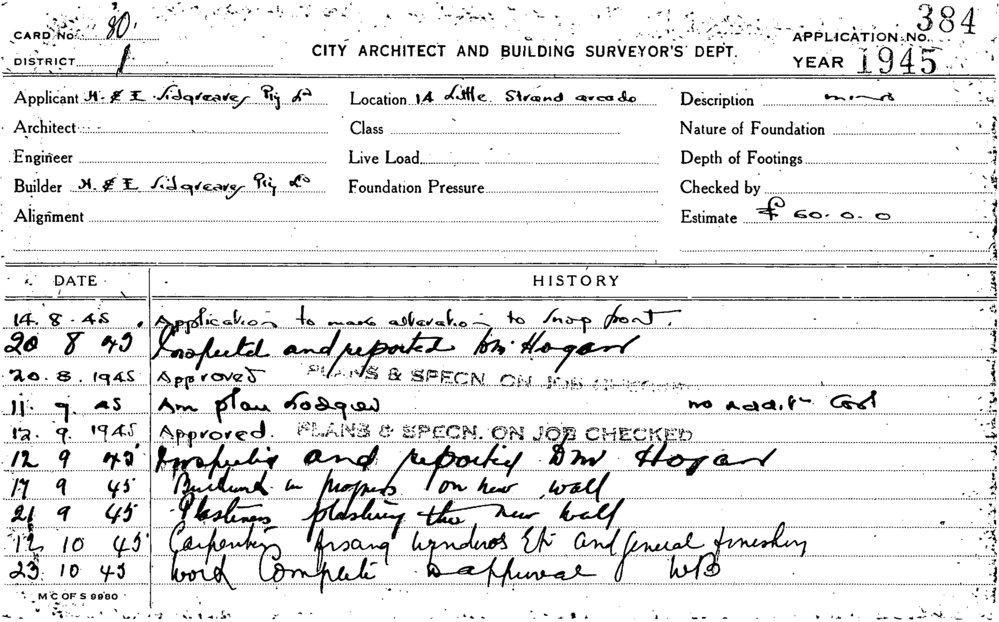 CARD No. 80.
DISTRICT 1
CITY ARCHITECT AND BUILDING SURVEYOR'S DEPT.
APPLICATION NO. 384
YEAR 1945
Applicant H. & E. Sidgreaves Pty Ld Location 14 Little Strand arcade Description minor
Architect Class Nature of Foundation
Engineer Live Load Depth of Footings
Builder H. & E Sidgreaves Pty Ld Foundation Pressure Checked by
Alignment Estimate £ 60. 0. 0
DATE HISTORY
14. 8. 45. Application to make alteration to shop front.
20 8 45 Inspected and reported DM Hogan
20. 8. 1945 Approved PLANS & SPECN. ON JOB CHECKED
11. 9. 45 Am plan Lodged no addit Cost
12. 9. 1945 Approved. PLANS & SPECN. ON JOB CHECKED
12 9 45 Inspected and reported DM Hogan
17 9 45 in progress on new wall
21 9 45 Plasterers plastering the new wall
12 10 45 Carpenters fixing windows Etc and general finishing
23. 10 45 Work Complete approval WB
M C OF S 9980